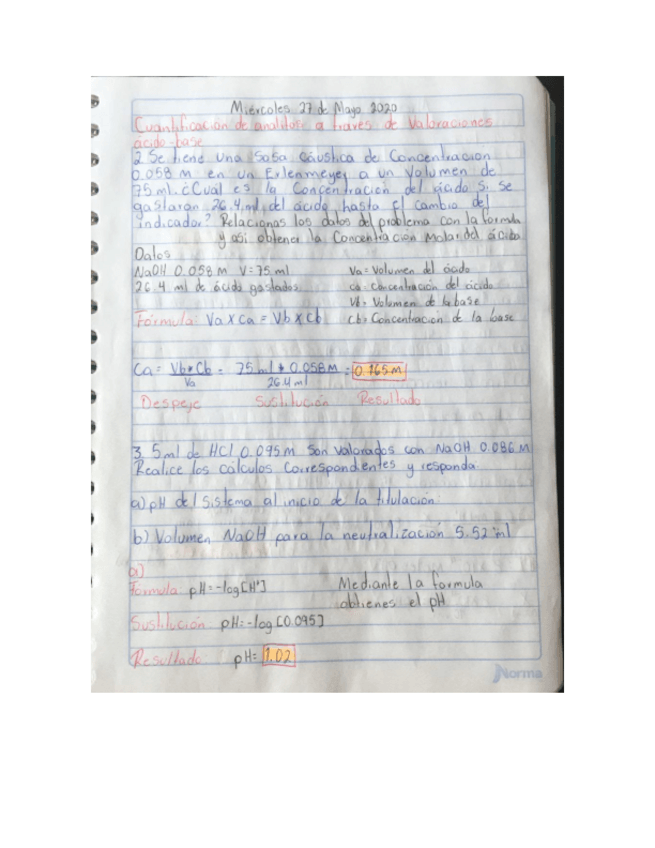 Miercoles 27 de Mayo 2020
Cuantificacion de analitos a traves de Valoraciones
ácido-base
2 Se tiene una Sosa Cáustica de Concentracion
0.058 M en un Erlenmeyer a un Volumen de
75 ml. ¿Cual es la Concentracion del ácido Si Se
gastaron 26.4 ml. del ácido hasta el cambio del
indicador? Relacionas los datos del problema con la formula
y asi obtener la Concentracion Molar del ácido
Datos
NaOH 0.058 M V=75 ml
26.4 ml de ácido gastados
Va= Volumen del ácido
Ca= Concentración del ácido
Vb= Volumen de la base
Cb= Concentración de la base
Fórmula: Va x Ca = Vb x Cb
Ca = Vb*Cb / Va = 75 ml * 0.058M / 26.4 ml = 0.165M
Despeje Sustitución Resultado
3. 5 ml de HCl 0.095 M Son Valorados con NaOH 0.086 M
Realice los cálculos Correspondientes y responda:
a) pH del Sistema al inicio de la titulación:
b) Volumen NaOH para la neutralización 5.52 ml
a)
Formula pH=-log[H⁺]
Mediante la formula
obtienes el pH
Sustitución pH=-log[0.095]
Resultado pH= 1.02
Norma